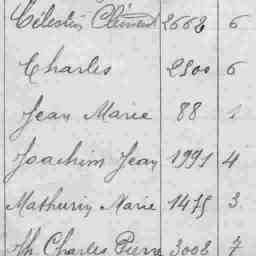 Célestin Clément 2668 6
Charles 2500 6
Jean Marie 88 1
Joachim Jean 1991 4
Mathurin Marie 1475 3
Charles Pierre 3008 7